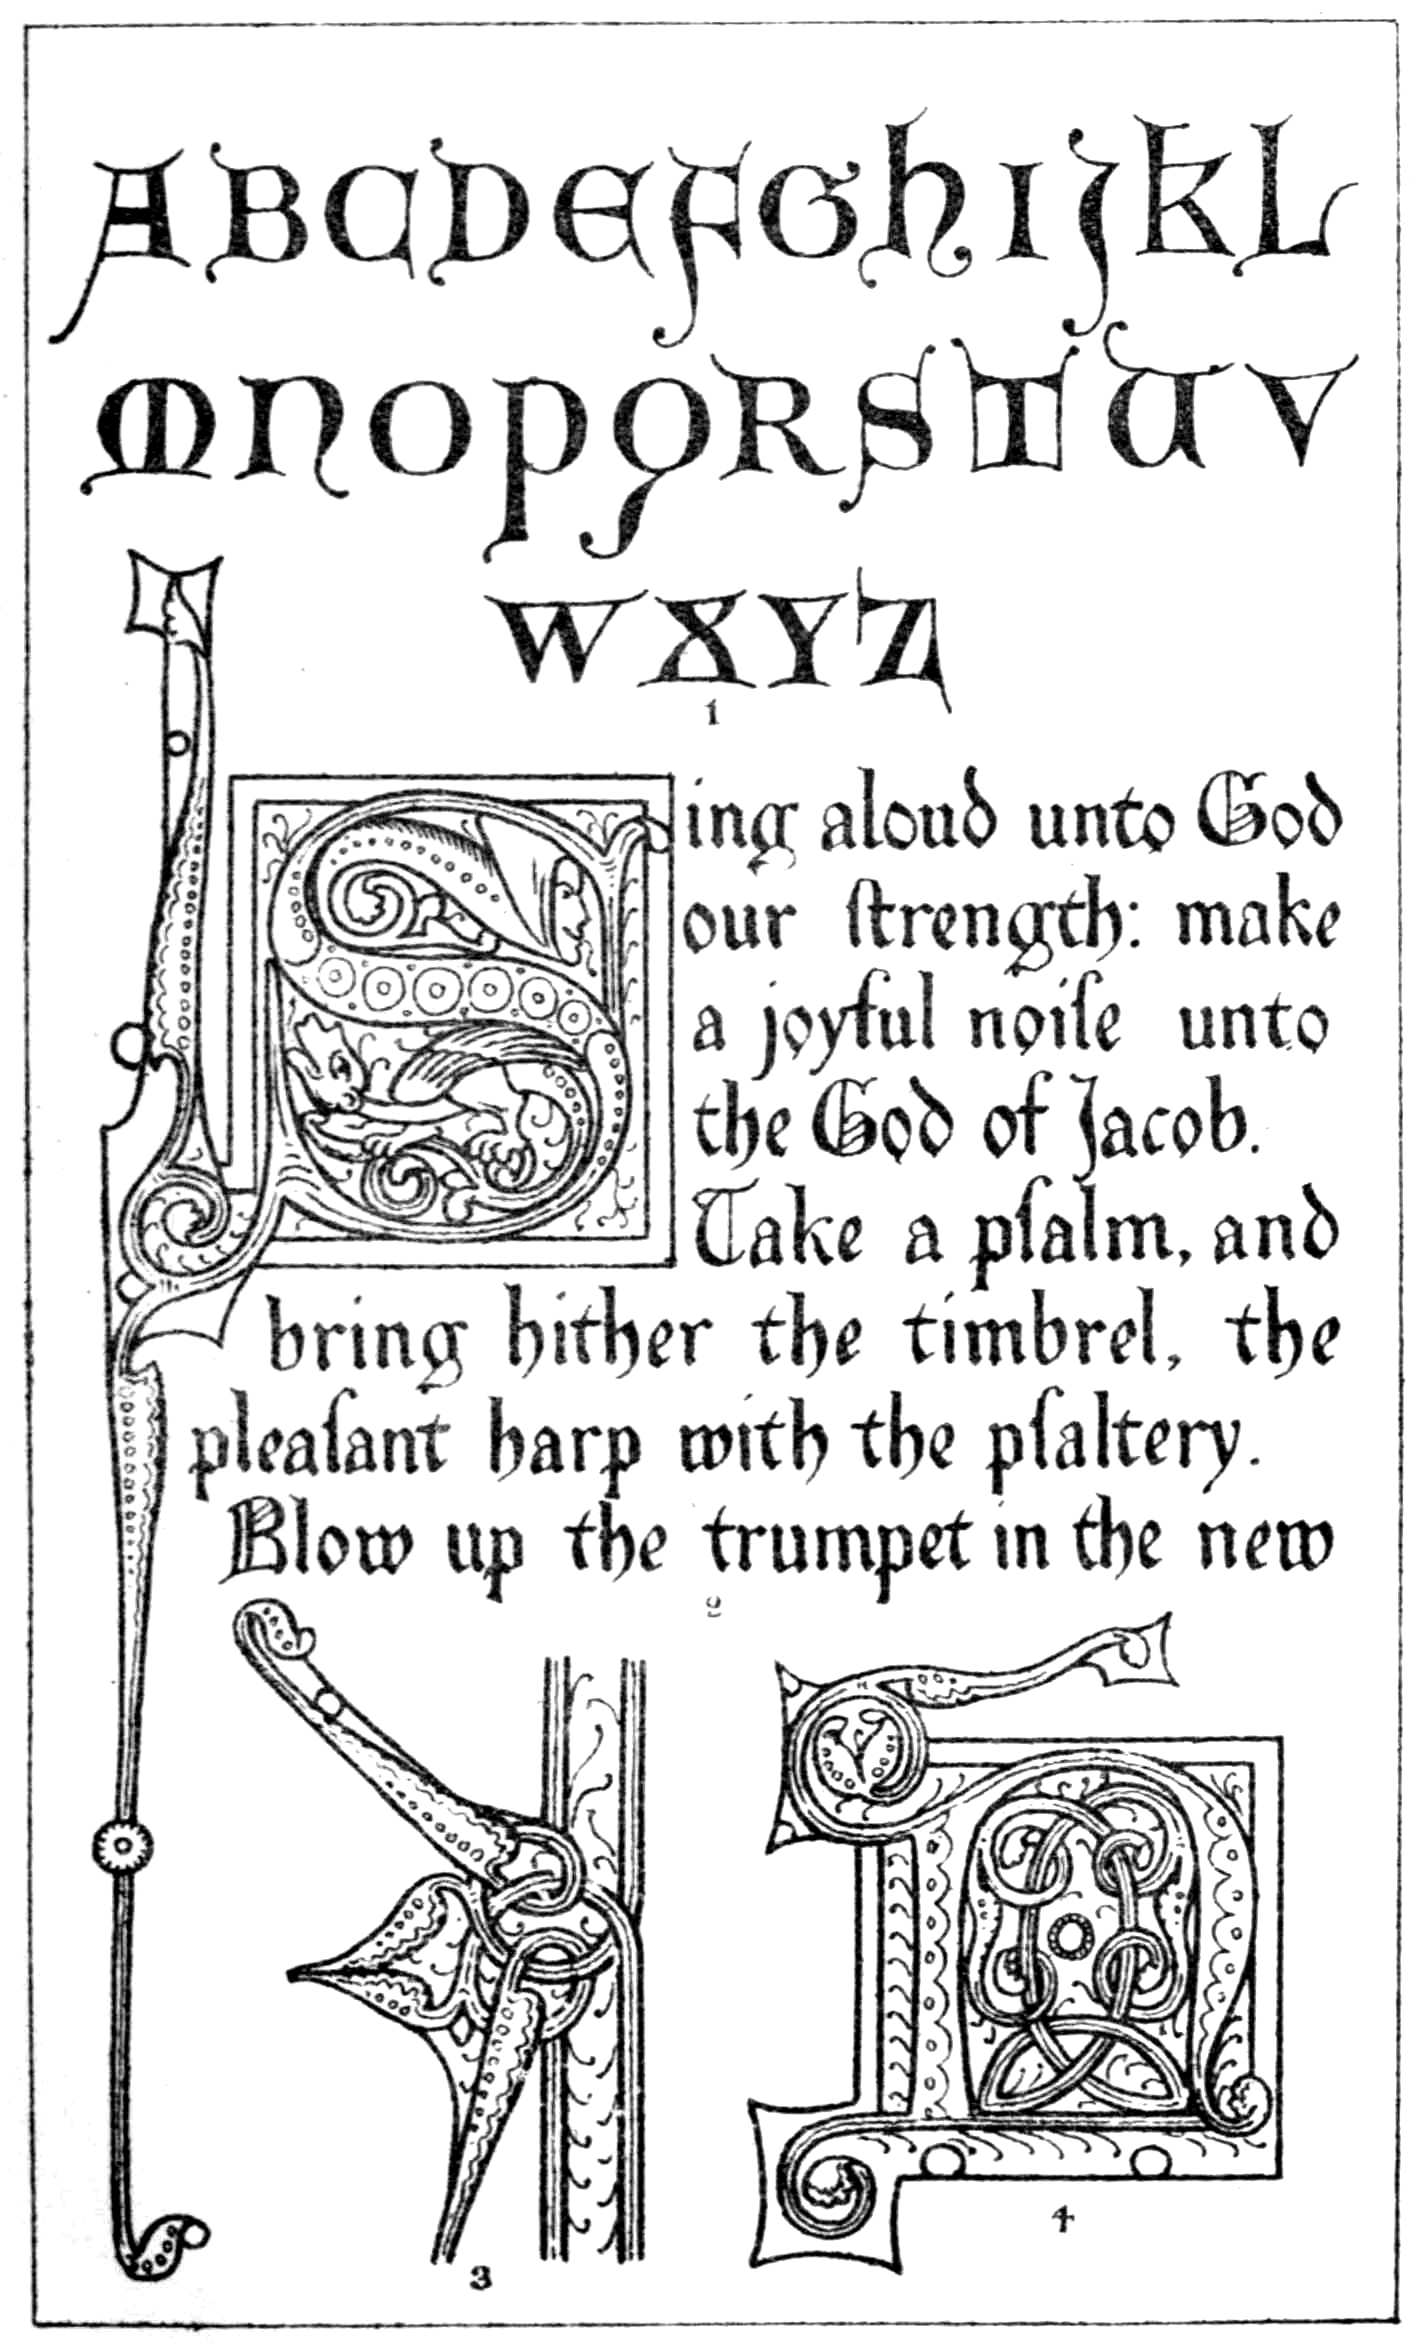 ABCDEFGHIJKL
MNOPQRSTUV
WXYZ
1
Sing aloud unto God
our ſtrength: make
a joyful noiſe unto
the God of Jacob.
Take a pſalm, and
bring hither the timbrel, the
pleaſant harp with the pſaltery.
Blow up the trumpet in the new
2
3
4